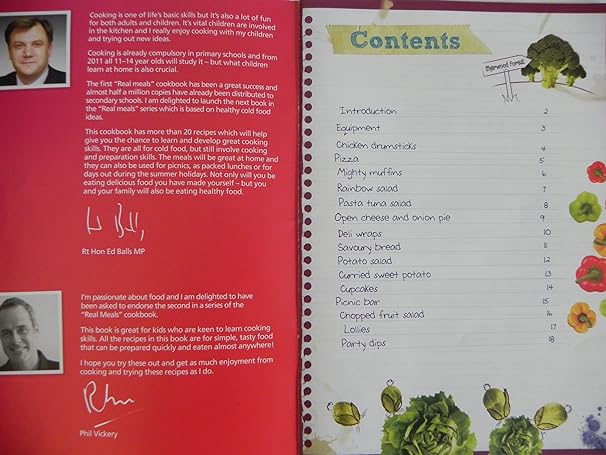 Cooking is one of life's basic skills but it's also a lot of fun
for both adults and children. It's vital children are involved
in the kitchen and I really enjoy cooking with my children
and trying out new ideas.
Cooking is already compulsory in primary schools and from
2011 all 11–14 year olds will study it – but what children
learn at home is also crucial.
The first "Real meals" cookbook has been a great success and
almost half a million copies have already been distributed to
secondary schools. I am delighted to launch the next book in
the "Real meals" series which is based on healthy cold food
ideas.
This cookbook has more than 20 recipes which will help
give you the chance to learn and develop great cooking
skills. They are all for cold food, but still involve cooking
and preparation skills. The meals will be great at home and
they can also be used for picnics, as packed lunches or for
days out during the summer holidays. Not only will you be
eating delicious food you have made yourself – but you
and your family will also be eating healthy food.
Ed Balls
Rt Hon Ed Balls MP
I'm passionate about food and I am delighted to have
been asked to endorse the second in a series of the
"Real Meals" cookbook.
This book is great for kids who are keen to learn cooking
skills. All the recipes in this book are for simple, tasty food
that can be prepared quickly and eaten almost anywhere!
I hope you try these out and get as much enjoyment from
cooking and trying these recipes as I do.
Phil Vickery
Contents
Sherwood Forest
Introduction 2
Equipment 3
Chicken drumsticks 4
Pizza 5
Mighty muffins 6
Rainbow salad 7
Pasta tuna salad 8
Open cheese and onion pie 9
Deli wraps 10
Savoury bread 11
Potato salad 12
Curried sweet potato 13
Cupcakes 14
Picnic bar 15
Chopped fruit salad 16
Lollies 17
Party dips 18